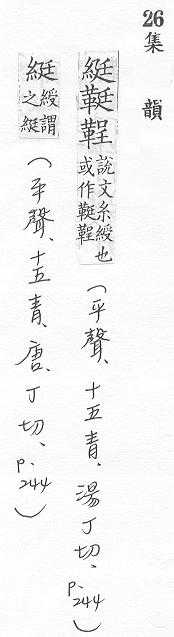 26集　韻
綎鞓鞓 說文糸綬也或作鞓鞓（平聲、十五青、湯丁切、p.244）
綎 綬謂之綎（平聲、十五青、唐丁切、p.244）